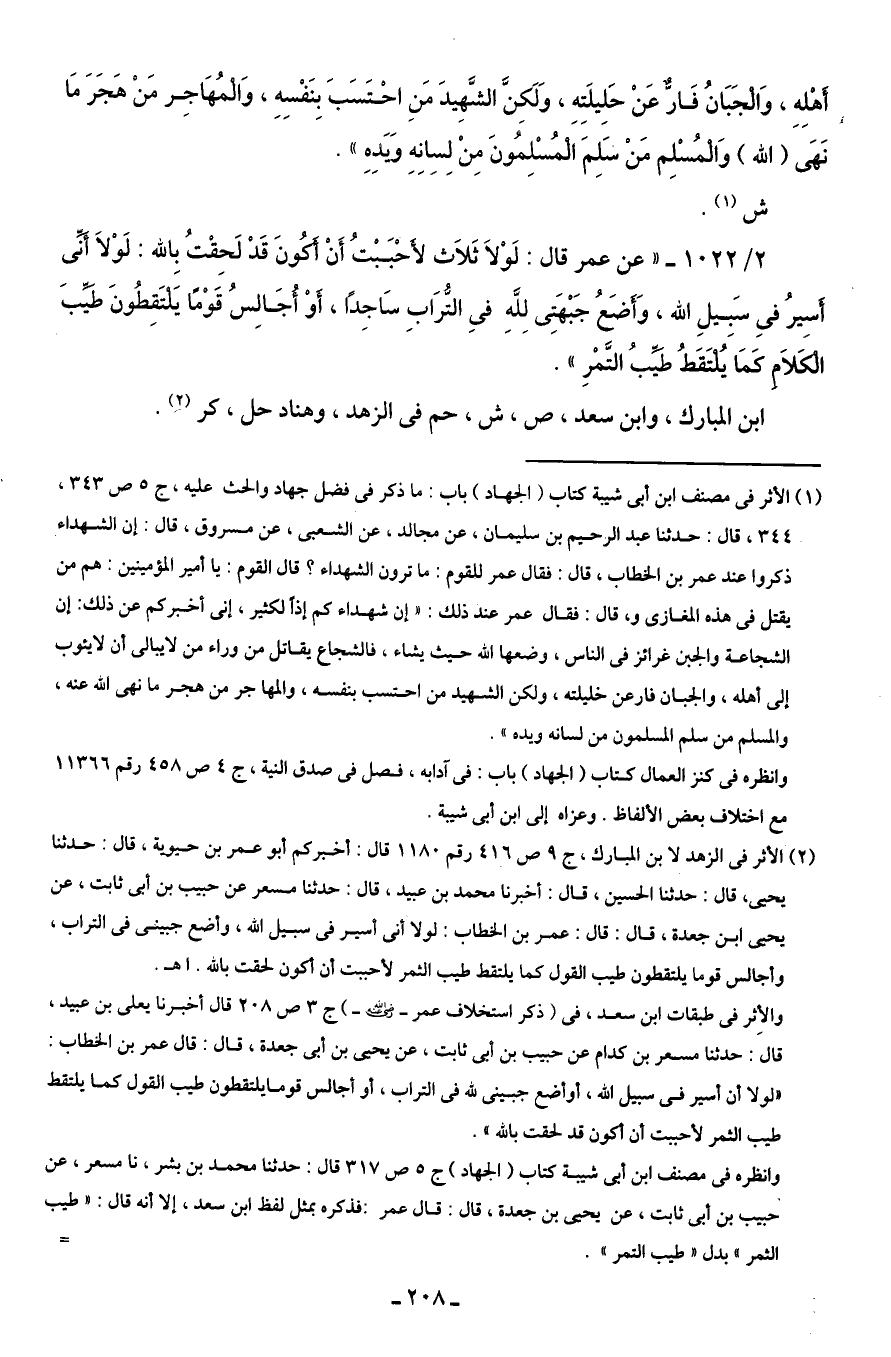 أَهْلِهِ ، وَالْجَبَانُ فَـارٌّ عَنْ حَلِيلَتِهِ ، وَلَكِنَّ الشَّهِيدَ مَنِ احْـتَسَبَ بِنَفْسِهِ ، وَالْمُهَاجِـرِ مَنْ هَجَرَ مَا
نَهَى ( الله ) وَالْمُسْلِم مَنْ سَلِمَ الْمُسْلِمُونَ مِنْ لِسَانِهِ وَيَدِهِ » .
ش (١) .
٢/ ١٠٢٢ ـ « عن عمر قال : لَوْلاَ ثَلاَث لأَحْبَـبْتُ أَنْ أَكُونَ قَدْ لَحِقْتُ بِالله : لَوْلاَ أَنِّى
أَسِيرُ فِى سَبِـيلِ الله ، وَأَضَعُ جَبْهَتِى لِلَّهِ فِى التُّرَابِ سَاجِدًا ، أَوْ أُجَـالِسُ قَوْمًا يَلْتَقِطُونَ طَيِّبَ
الْكَلاَمِ كَمَا يُلْتَقَطُ طَيِّبُ التَّمْرِ » .
ابن المبارك ، وابن سعد ، ص ، ش ، حم فى الزهد ، وهناد حل ، كر (٢) .
(١) الأثر فى مصنف ابن أبى شيبة كتاب ( الجهـاد ) باب : ما ذكر فى فضل جهاد والحث عليه ، ج ٥ ص ٣٤٣ ،
٣٤٤ ، قال : حـدثنا عبد الرحيم بن سليمـان ، عن مجالد ، عن الشـعبى ، عن مسـروق ، قال : إن الشـهداء
ذكروا عند عمر بن الخطاب ، قال : فقال عمر للقوم : ما ترون الشهداء ؟ قال القوم : يا أمير المؤمينين : هم من
يقتل فى هذه المغازى و، قال : فقـال عمر عند ذلك : « إن شهـداء كم إذاً لكثير ، إنى أخـبركم عن ذلك: إن
الشجاعـة والجبن غرائز فى الناس ، وضعها الله حـيث يشاء ، فالشجاع يقـاتل من وراء من لايبالى أن لايثوب
إلى أهله ، والجبـان فارعن خليلته ، ولكن الشـهيد من احـتسب بنفسـه ، والمها جر من هجـر ما نهى الله عنه ،
والمسلم من سلم المسلمون من لسانه ويده » .
وانظره فى كنز العمال كـتاب ( الجهاد ) باب : فى آدابه ، فـصل فى صدق النية ، ج ٤ ص ٤٥٨ رقم ١١٣٦٦
مع اختلاف بعض الألفاظ . وعزاه إلى ابن أبى شيبة .
(٢) الأثر فى الزهد لا بن المبارك ، ج ٩ ص ٤١٦ رقم ١١٨٠ قال : أخـبركم أبو عمـر بن حـيوية ، قال : حـدثنا
يحيى، قال : حدثنا الحسين ، قـال : أخبرنا محمد بن عبيد ، قال : حدثنا مسعر عن حبيب بن أبى ثابت ، عن
يحيى ابـن جعدة ، قـال : قال : عمـر بن الخطاب : لولا أنى أسيـر فى سبيل الله ، وأضع جبينـى فى التراب ،
وأجالس قوما يلتقطون طيب القول كما يلتقط طيب الثمر لأحببت أن أكون لحقت بالله . ا هـ .
والأثر فى طبقات ابن سعـد ، فى ( ذكر استخلاف عمر ـ رضي الله عنه ـ ) ج ٣ ص ٢٠٨ قال أخبـرنا يعلى بن عبيد ،
قال : حدثنا مسعر بن كدام عن حبيب بن أبى ثابت ، عن يحيى بن أبى جعدة ، قـال : قال عمر بن الخطاب :
«لولا أن أسير فـى سبيل الله ، أوأضع جبـينى لله فى التراب ، أو أجالس قومـايلتقطون طيب القول كمـا يلتقط
طيب الثمر لأحببت أن أكون قد لحقت بالله » .
وانظره فى مصنف ابن أبى شيبة كتاب ( الجهاد ) ج ٥ ص ٣١٧ قال : حدثنا محمـد بن بشر ، نا مسعر ، عن
حبيب بن أبى ثابت ، عن يحيى بن جعدة ، قال : قـال عمر :فذكره بمثل لفظ ابن سعد ، إلا أنه قال : « طيب
الثمر » بدل « طيب التمر » .
=
ـ ٢٠٨ ـ